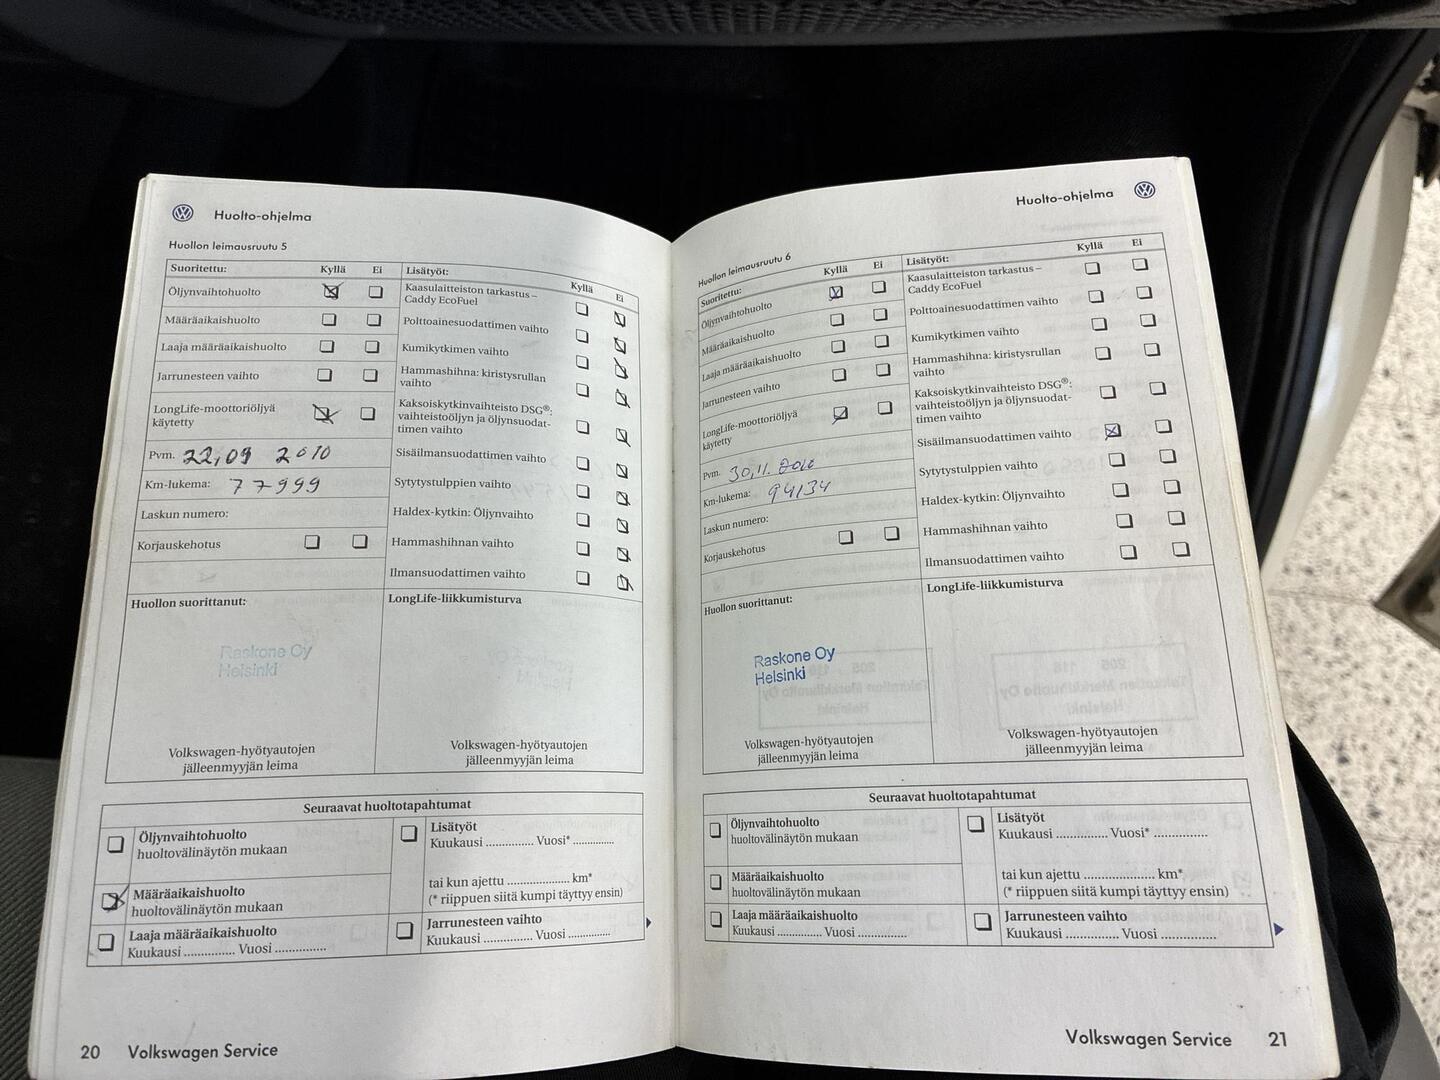 Huolto-ohjelma
Huollon leimausruutu 5
Suoritettu: Kyllä Ei
Öljynvaihtohuolto
Määräaikaishuolto
Laaja määräaikaishuolto
Jarrunesteen vaihto
LongLife-moottoriöljyä
käytetty
Pvm. 22,09 2010
Km-lukema: 77999
Laskun numero:
Korjauskehotus
Huollon suorittanut:
Raskone Oy
Helsinki
Volkswagen-hyötyautojen
jälleenmyyjän leima
Lisätyöt: Kyllä Ei
Kaasulaitteiston tarkastus –
Caddy EcoFuel
Polttoainesuodattimen vaihto
Kumikytkimen vaihto
Hammashihna: kiristysrullan
vaihto
Kaksoiskytkinvaihteisto DSG®:
vaihteistoöljyn ja öljynsuodat-
timen vaihto
Sisäilmansuodattimen vaihto
Sytytystulppien vaihto
Haldex-kytkin: Öljynvaihto
Hammashihnan vaihto
Ilmansuodattimen vaihto
LongLife-liikkumisturva
Volkswagen-hyötyautojen
jälleenmyyjän leima
Seuraavat huoltotapahtumat
Öljynvaihtohuolto
huoltovälinäytön mukaan
Määräaikaishuolto
huoltovälinäytön mukaan
Laaja määräaikaishuolto
Kuukausi ............... Vuosi ...............
Lisätyöt
Kuukausi .............. Vuosi* ............
tai kun ajettu ..................... km*
(* riippuen siitä kumpi täyttyy ensin)
Jarrunesteen vaihto
Kuukausi .............. Vuosi ............
20 Volkswagen Service
Huolto-ohjelma
Huollon leimausruutu 6
Suoritettu: Kyllä Ei
Öljynvaihtohuolto
Määräaikaishuolto
Laaja määräaikaishuolto
Jarrunesteen vaihto
LongLife-moottoriöljyä
käytetty
Pvm. 30,11.
Km-lukema: 94134
Laskun numero:
Korjauskehotus
Huollon suorittanut:
Raskone Oy
Helsinki
Volkswagen-hyötyautojen
jälleenmyyjän leima
Lisätyöt: Kyllä Ei
Kaasulaitteiston tarkastus –
Caddy EcoFuel
Polttoainesuodattimen vaihto
Kumikytkimen vaihto
Hammashihna: kiristysrullan
vaihto
Kaksoiskytkinvaihteisto DSG®:
vaihteistoöljyn ja öljynsuodat-
timen vaihto
Sisäilmansuodattimen vaihto
Sytytystulppien vaihto
Haldex-kytkin: Öljynvaihto
Hammashihnan vaihto
Ilmansuodattimen vaihto
LongLife-liikkumisturva
Volkswagen-hyötyautojen
jälleenmyyjän leima
Seuraavat huoltotapahtumat
Öljynvaihtohuolto
huoltovälinäytön mukaan
Määräaikaishuolto
huoltovälinäytön mukaan
Laaja määräaikaishuolto
Kuukausi ............. Vuosi ..............
Lisätyöt
Kuukausi .............. Vuosi* ..............
tai kun ajettu ..................... km*
(* riippuen siitä kumpi täyttyy ensin)
Jarrunesteen vaihto
Kuukausi .............. Vuosi ...............
Volkswagen Service 21